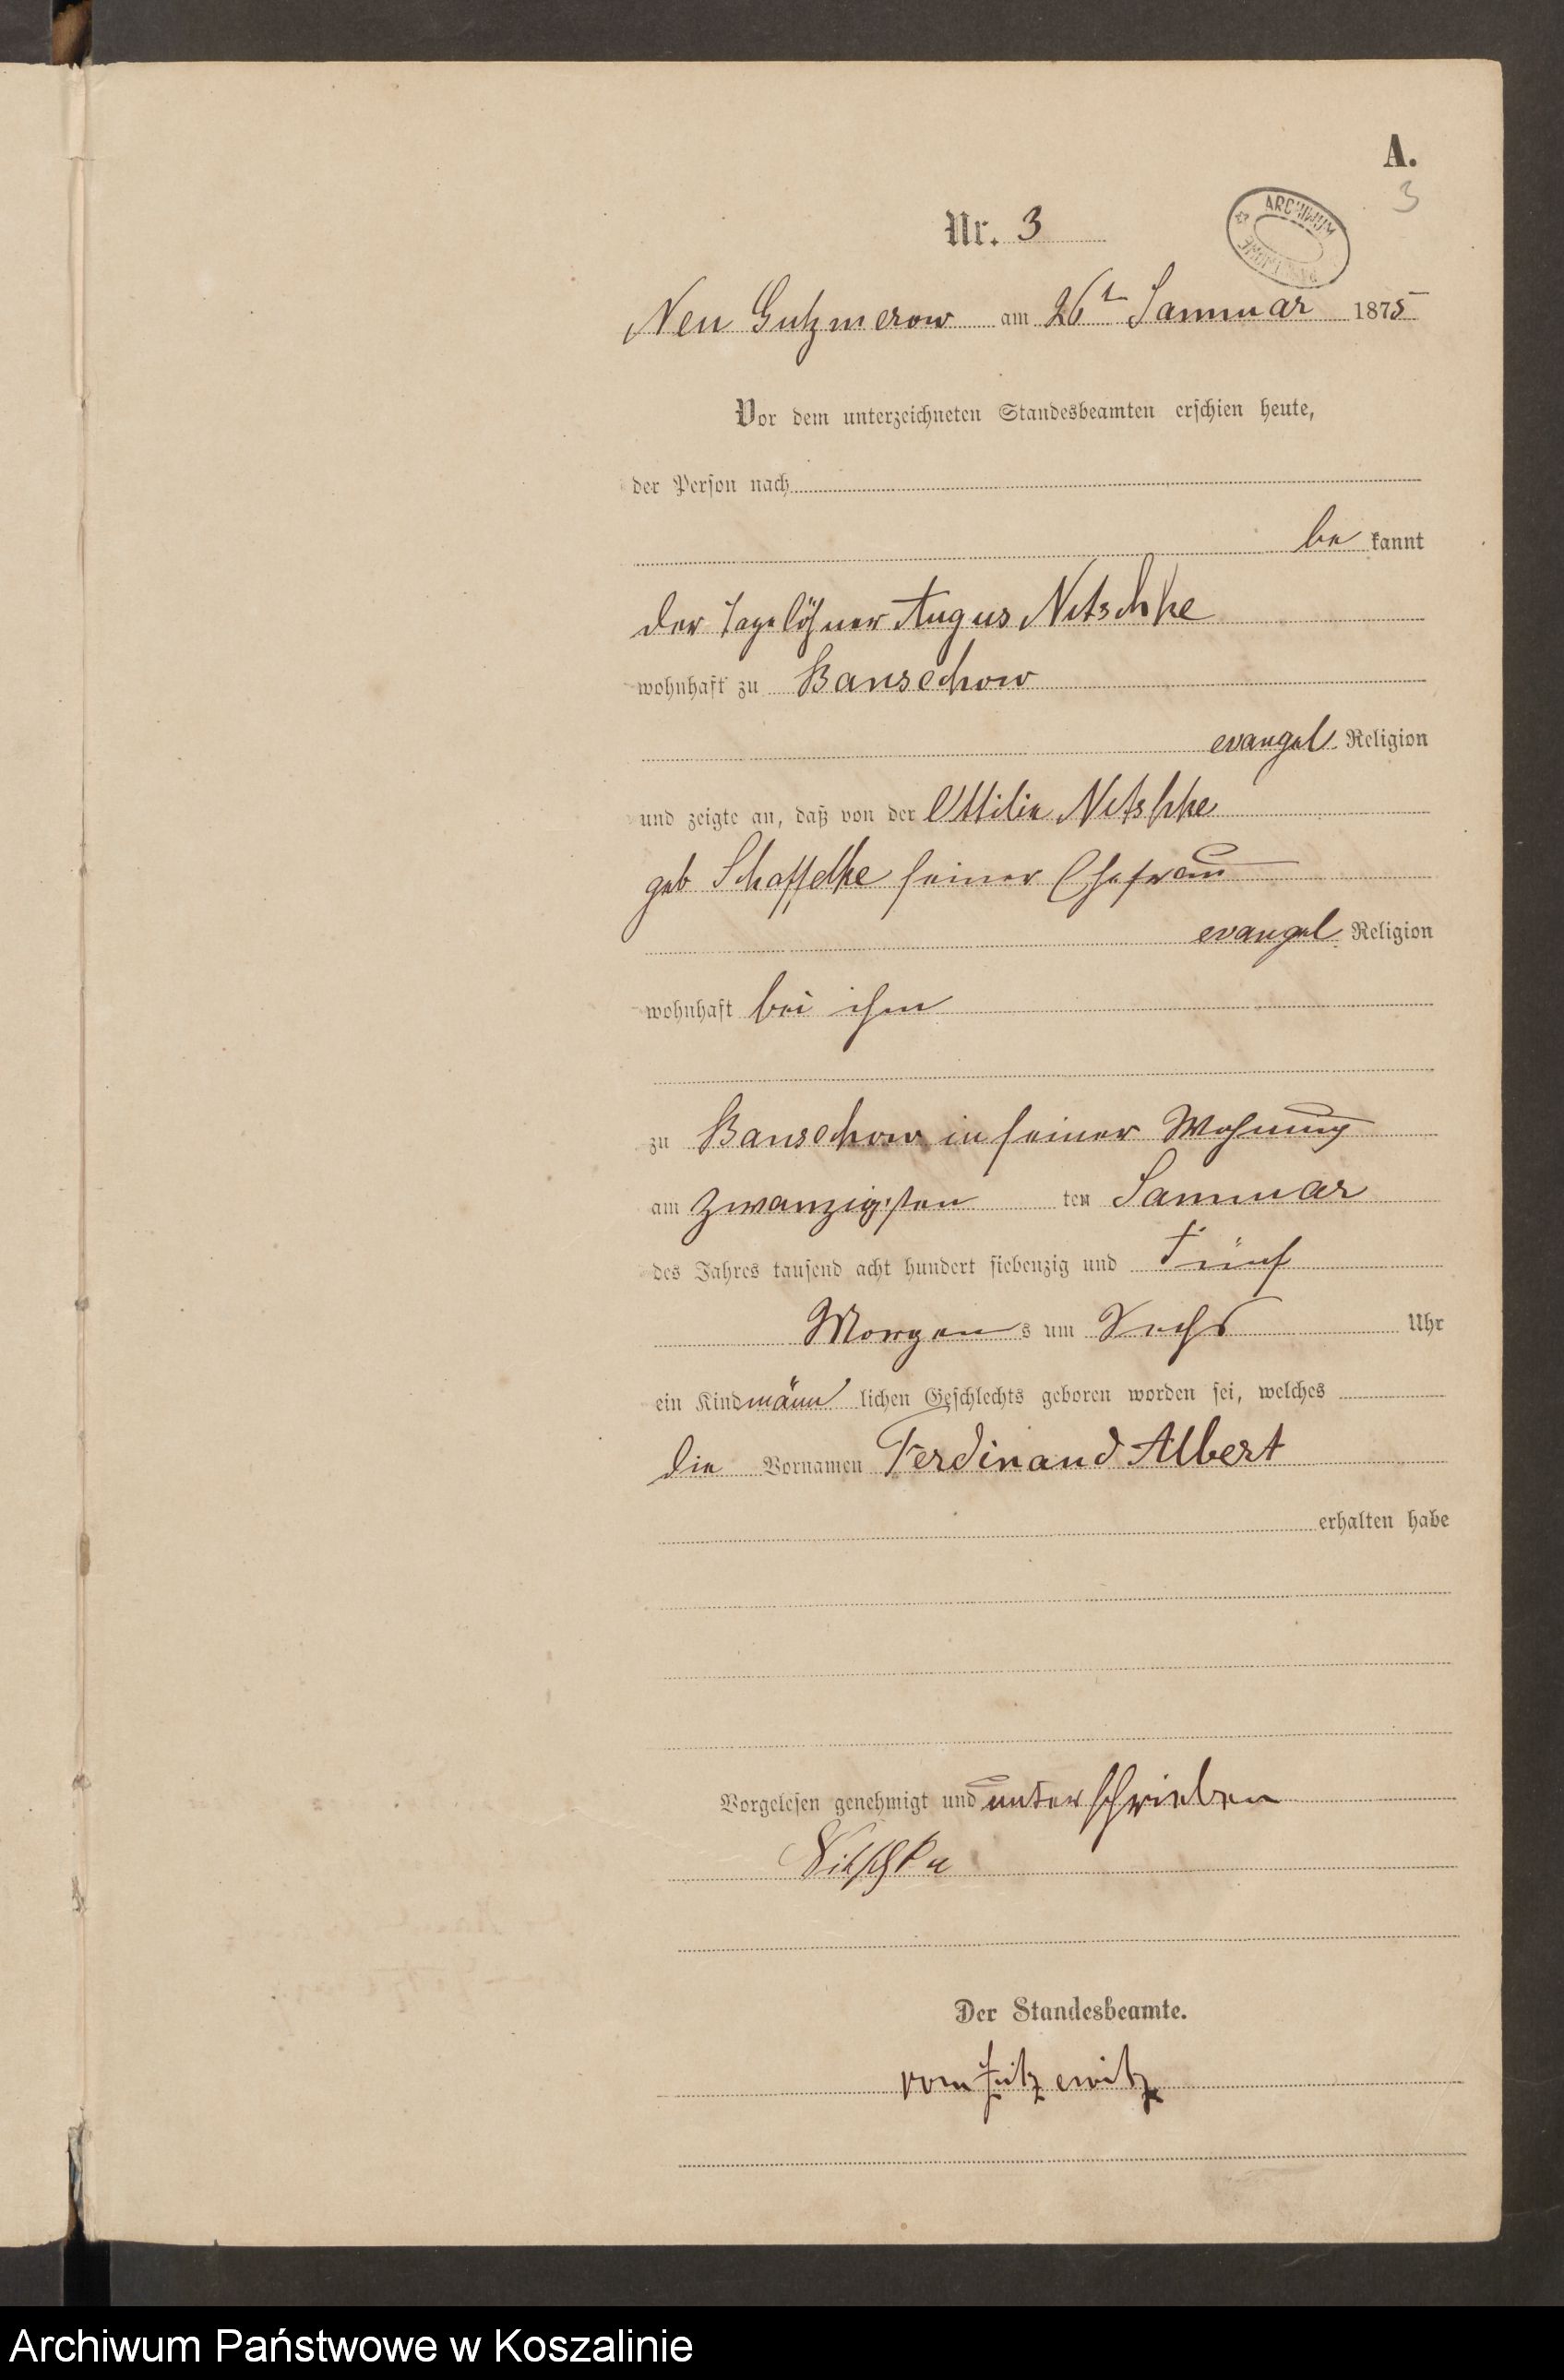 A.
3
ARCHIWUM
Nr. 3
Neu Gutzmerow am 26t Januuar 1875
Vor dem unterzeichneten Standesbeamten erschien heute,
der Person nach
be kannt
der Tagelöhner Augus Nitschke
wohnhaft zu Banschow
evangel. Religion
und zeigte an, daß von der Ottilie Nitshke
geb Schaffelke seiner Ehefrau
evangel. Religion
wohnhaft bei ihm
zu Banschow in seiner Wohnung
am Zwanzigsten ten Januuar
des Jahres tausend acht hundert siebenzig und Fünf
Morgen s um Sechs Uhr
ein Kind männ lichen Geschlechts geboren worden sei, welches
die Vornamen Ferdinand Albert
erhalten habe
Vorgelesen genehmigt und unterschrieben
Nitschke
Der Standesbeamte.
Archiwum Państwowe w Koszalinie